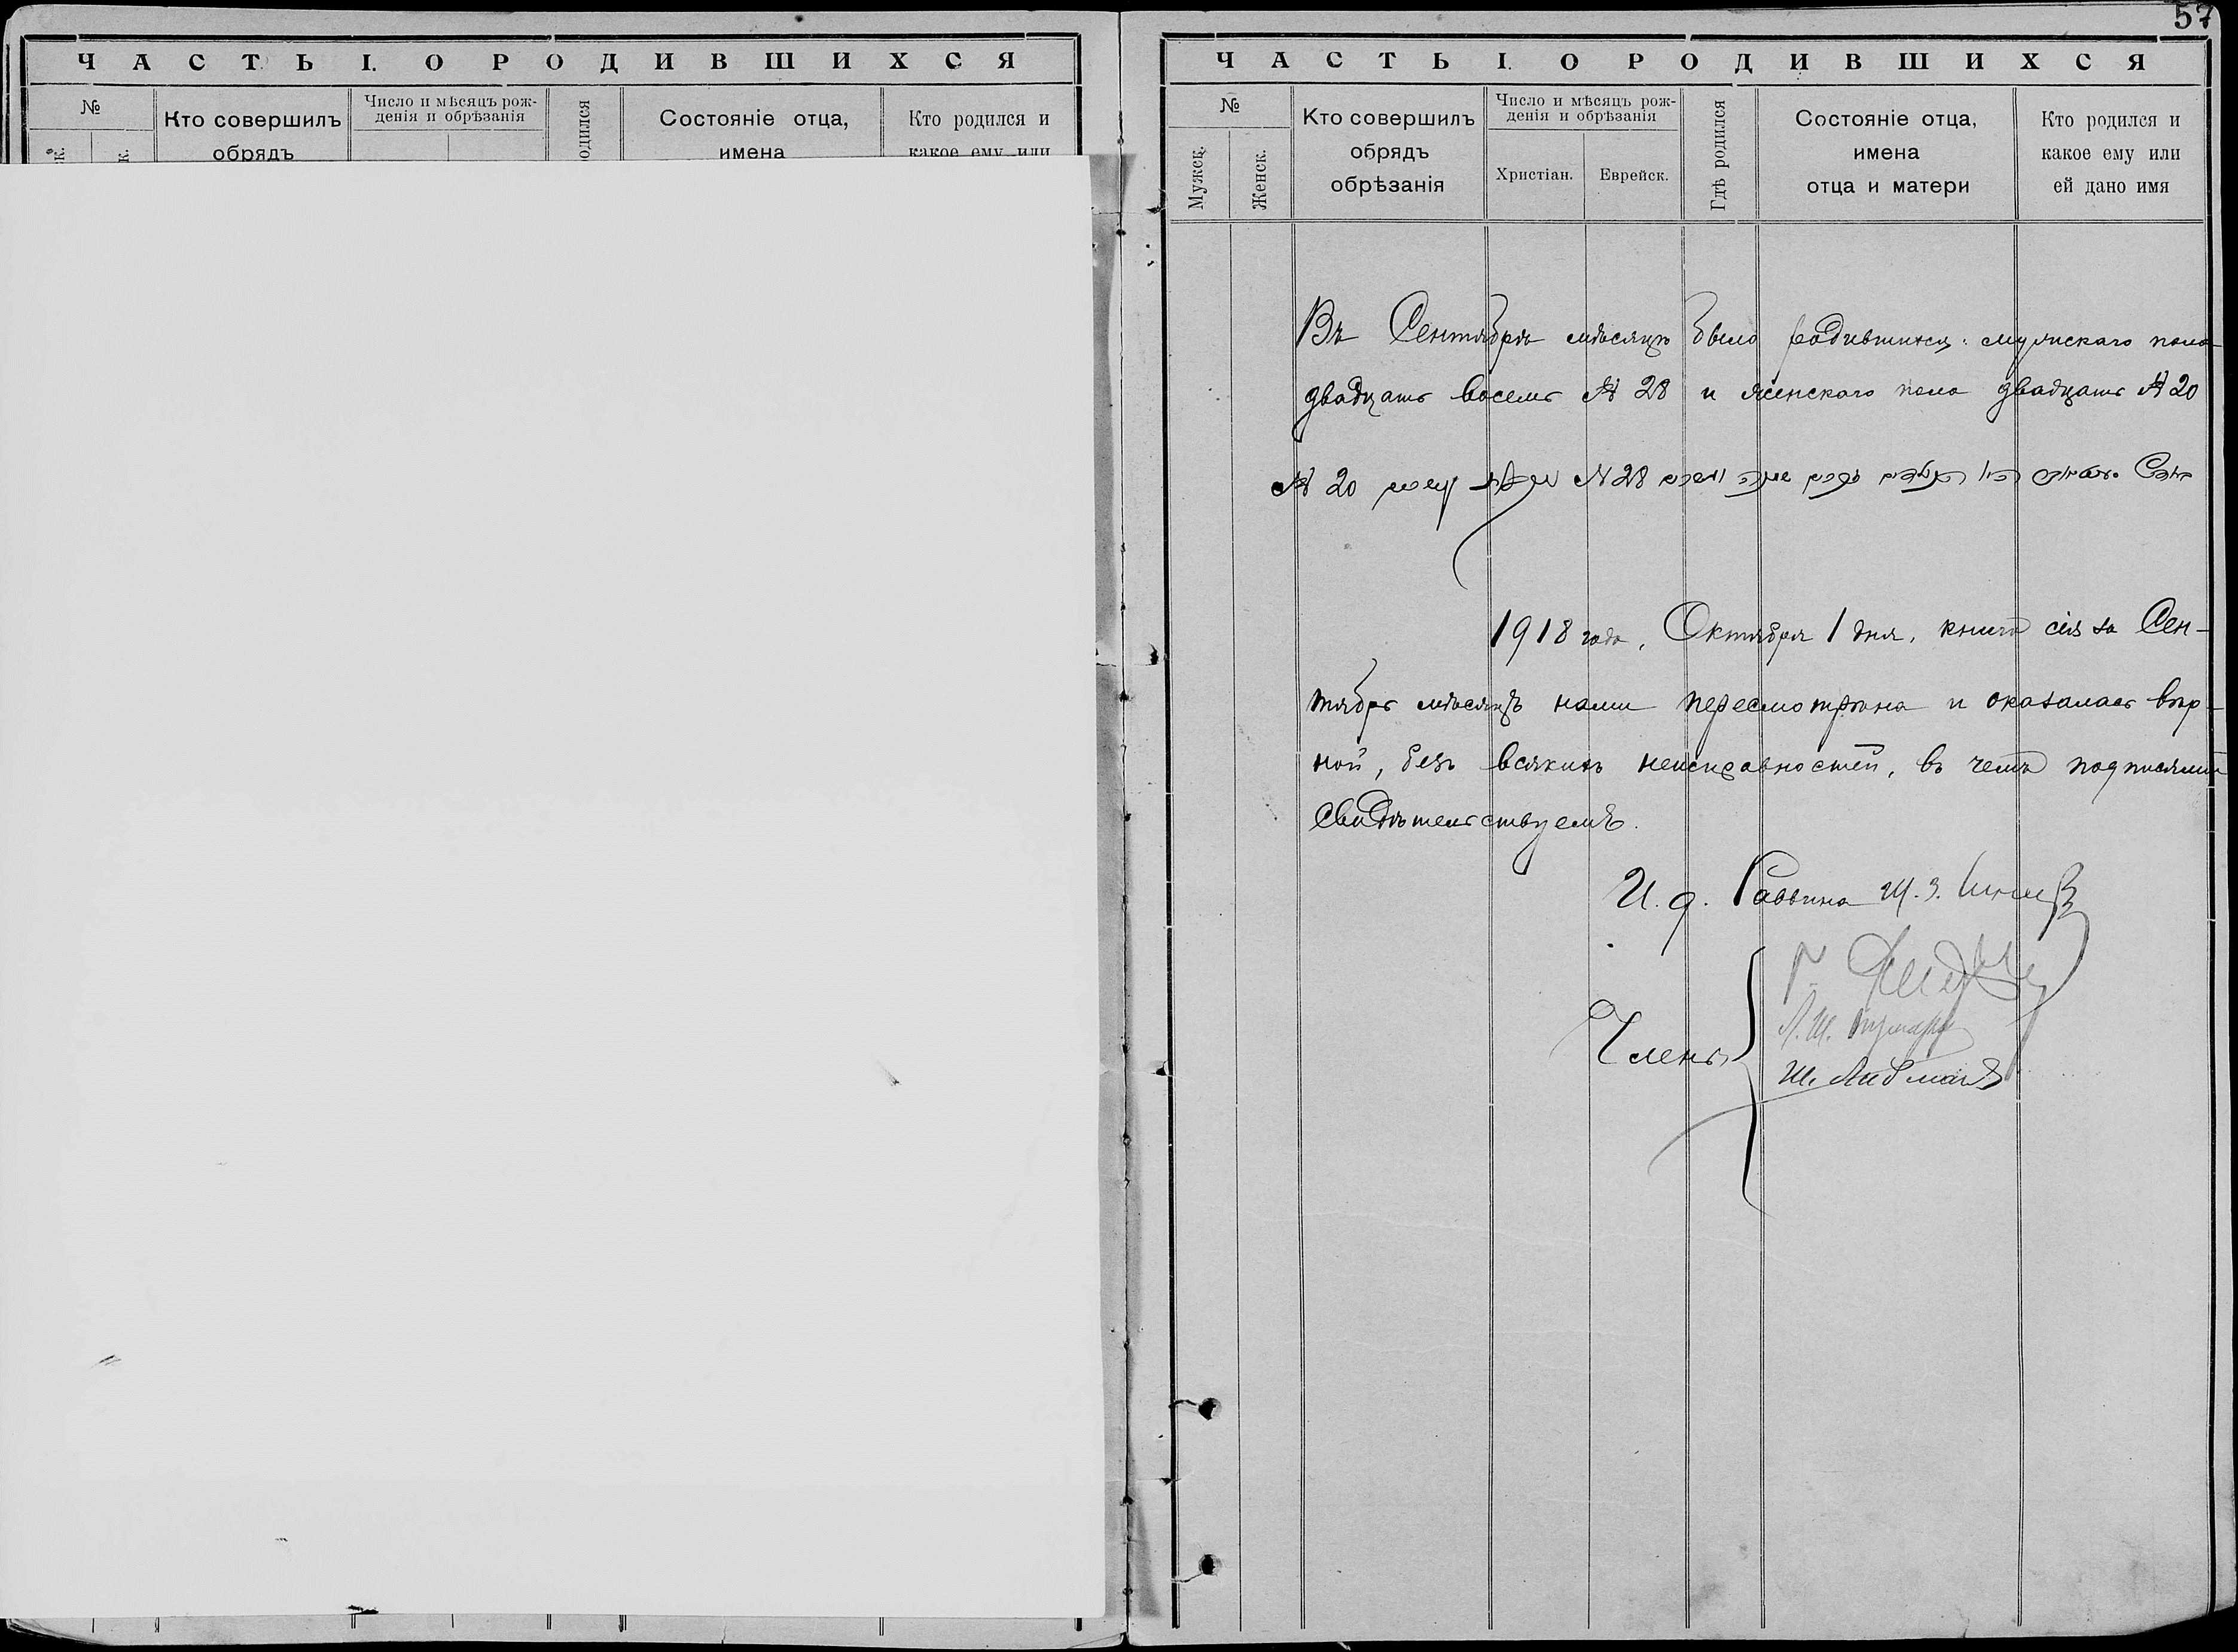 ЧАСТЬ I. О РОДИВШИХСЯ
№
Кто совершилъ
обрядъ
Число и мѣсяцъ рож-
денія и обрѣзанія
одился
Состояніе отца,
имена
Кто родился и
какое ему или
57
ЧАСТЬ I. О РОДИВШИХСЯ
№
Мужск.
Женск.
Кто совершилъ
обрядъ
обрѣзанія
Число и мѣсяцъ рож-
денія и обрѣзанія
Христіан.
Еврейск.
Гдѣ родился
Состояніе отца,
имена
отца и матери
Кто родился и
какое ему или
ей дано имя
Въ Сентябрѣ мѣсяцѣ было родившихся: мужскаго пола
двадцать восемь № 28 и женскаго пола двадцать № 20
№ 20 № 28
1918 года, Октября 1 дня, книга сія за Сен-
тябрь мѣсяцъ нами пересмотрѣна и оказалась вѣр-
ной, безъ всякихъ неисправностей, въ чемъ подписями
свидѣтельствуемъ.
И. д. Раввина
Члены
Ш. Либманъ